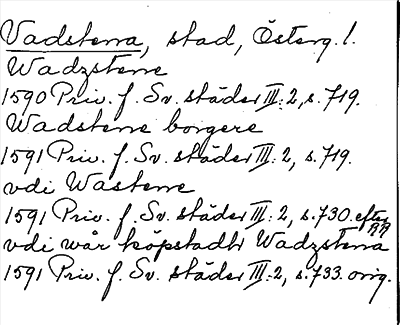 Vadstena, stad, Österg. l.
Wadzstene
1590 Priv. f. Sv. städer III: 2, s. 719.
Wadstene borgere
1591 Priv. f. Sv. städer III: 2, s. 719.
vdi Wastene
1591 Priv. f. Sv. städer III: 2, s. 730. efter RR
vdi wår köpstadh Wadzstena
1591 Priv. f. Sv. städer III: 2, s. 733. orig.